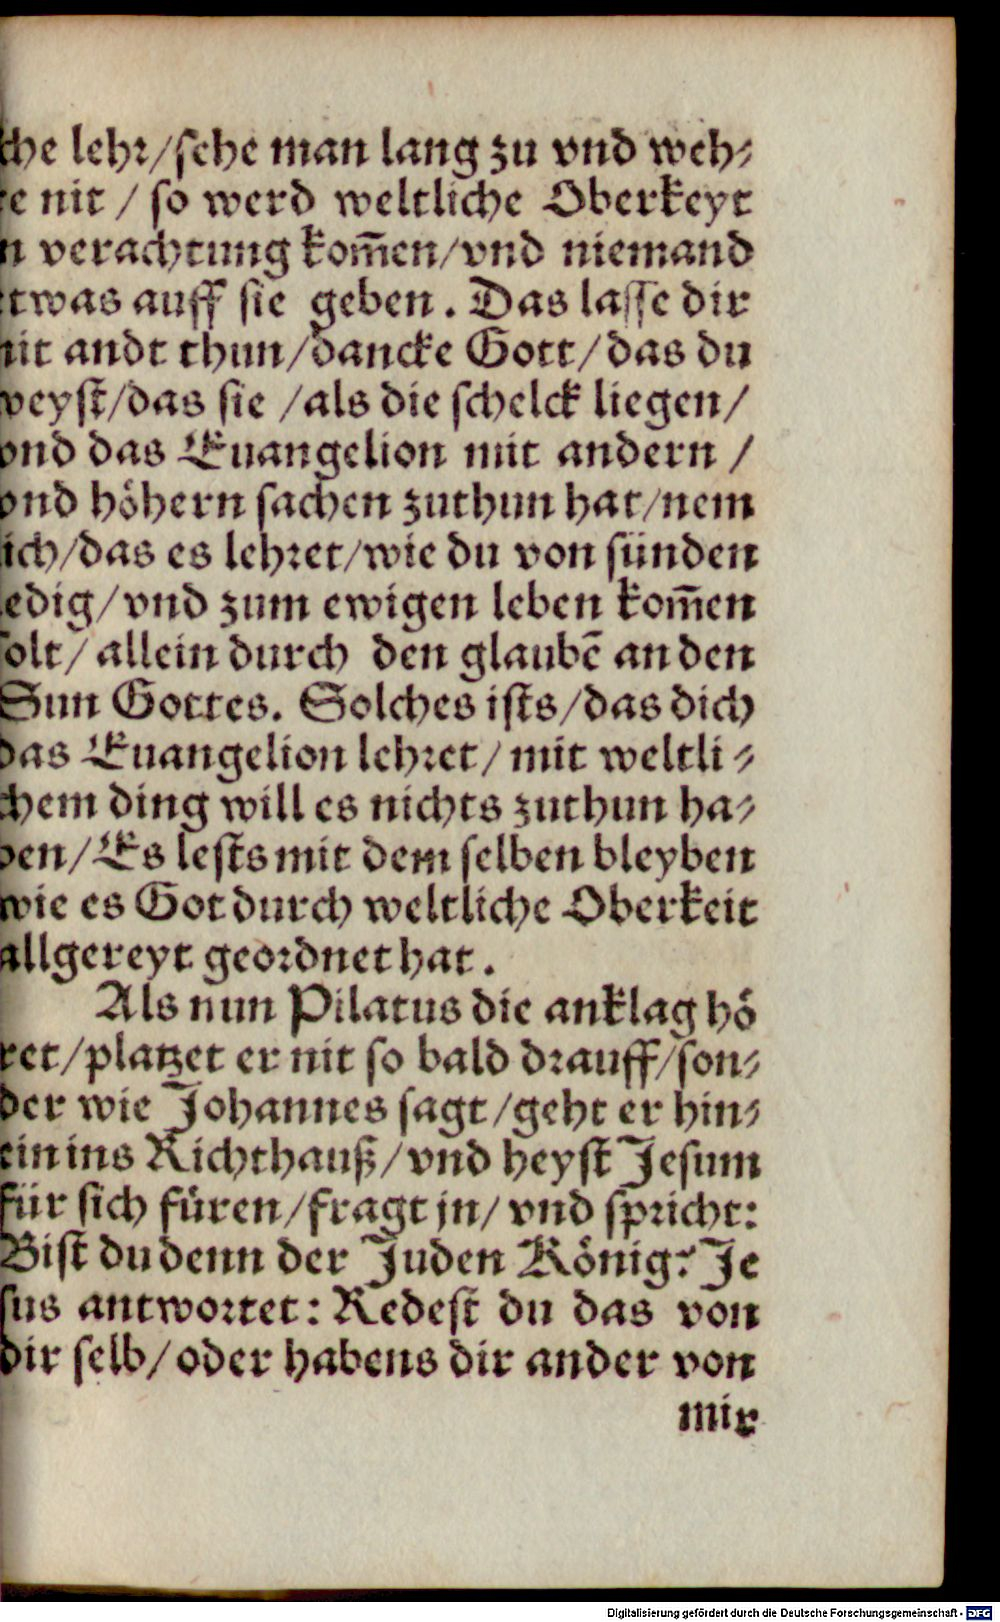 che lehr/sehe man lang zu vnd weh⸗
re nit / so werd weltliche Oberkeyt
n verachtung kom̄en/vnd niemand
etwas auff sie geben. Das lasse dir
nit andt thun/dancke Gott/das du
weyst/das sie /als die schelck liegen/
vnd das Euangelion mit andern /
vnd höhern sachen zuthun hat/nem
lich/das es lehret/wie du von sünden
ledig/vnd zum ewigen leben kom̄en
solt/ allein durch den glaubē an den
Sun Gottes. Solches ists/das dich
das Euangelion lehret/ mit weltli⸗
chem ding will es nichts zuthun ha⸗
ben/Es lests mit dem selben bleyben
wie es Got durch weltliche Oberkeit
allgereyt geordnet hat.
Als nun Pilatus die anklag hö
ret/platzet er nit so bald drauff/son⸗
der wie Johannes sagt/geht er hin⸗
ein ins Richthauß/vnd heyst Jesum
für sich füren/fragt jn/ vnd spricht:
Bist du denn der Juden König? Je
sus antwortet: Redest du das von
dir selb/oder habens dir ander von
mir
Digitalisierung gefördert durch die Deutsche Forschungsgemeinschaft - DFG